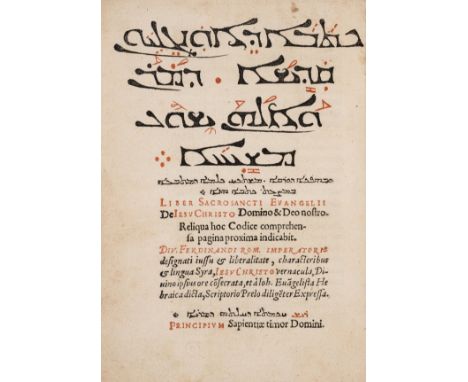 ܟܬܒܐ ܕܐܘܢܓܠܝܘܢ
ܩܕܝܫܐ . ܕܡܪܢ
ܘܐܠܗܢ ܝܫܘܥ
ܡܫܝܚܐ
LIBER SACROSANCTI EVANGELII
De IESV CHRISTO Domino & Deo nostro.
Reliqua hoc Codice comprehen-
sa pagina proxima indicabit.
DIV. FERDINANDI ROM. IMPERATORIS
designati iussu & liberalitate, characteribus
& lingua Syra, IESV CHRISTO vernacula, Di-
uino ipsius ore cõsecrata, et à Ioh. Euãgelista He-
braica dicta, Scriptorio Prelo diligẽter Expressa.
PRINCIPIVM Sapientiæ timor Domini.